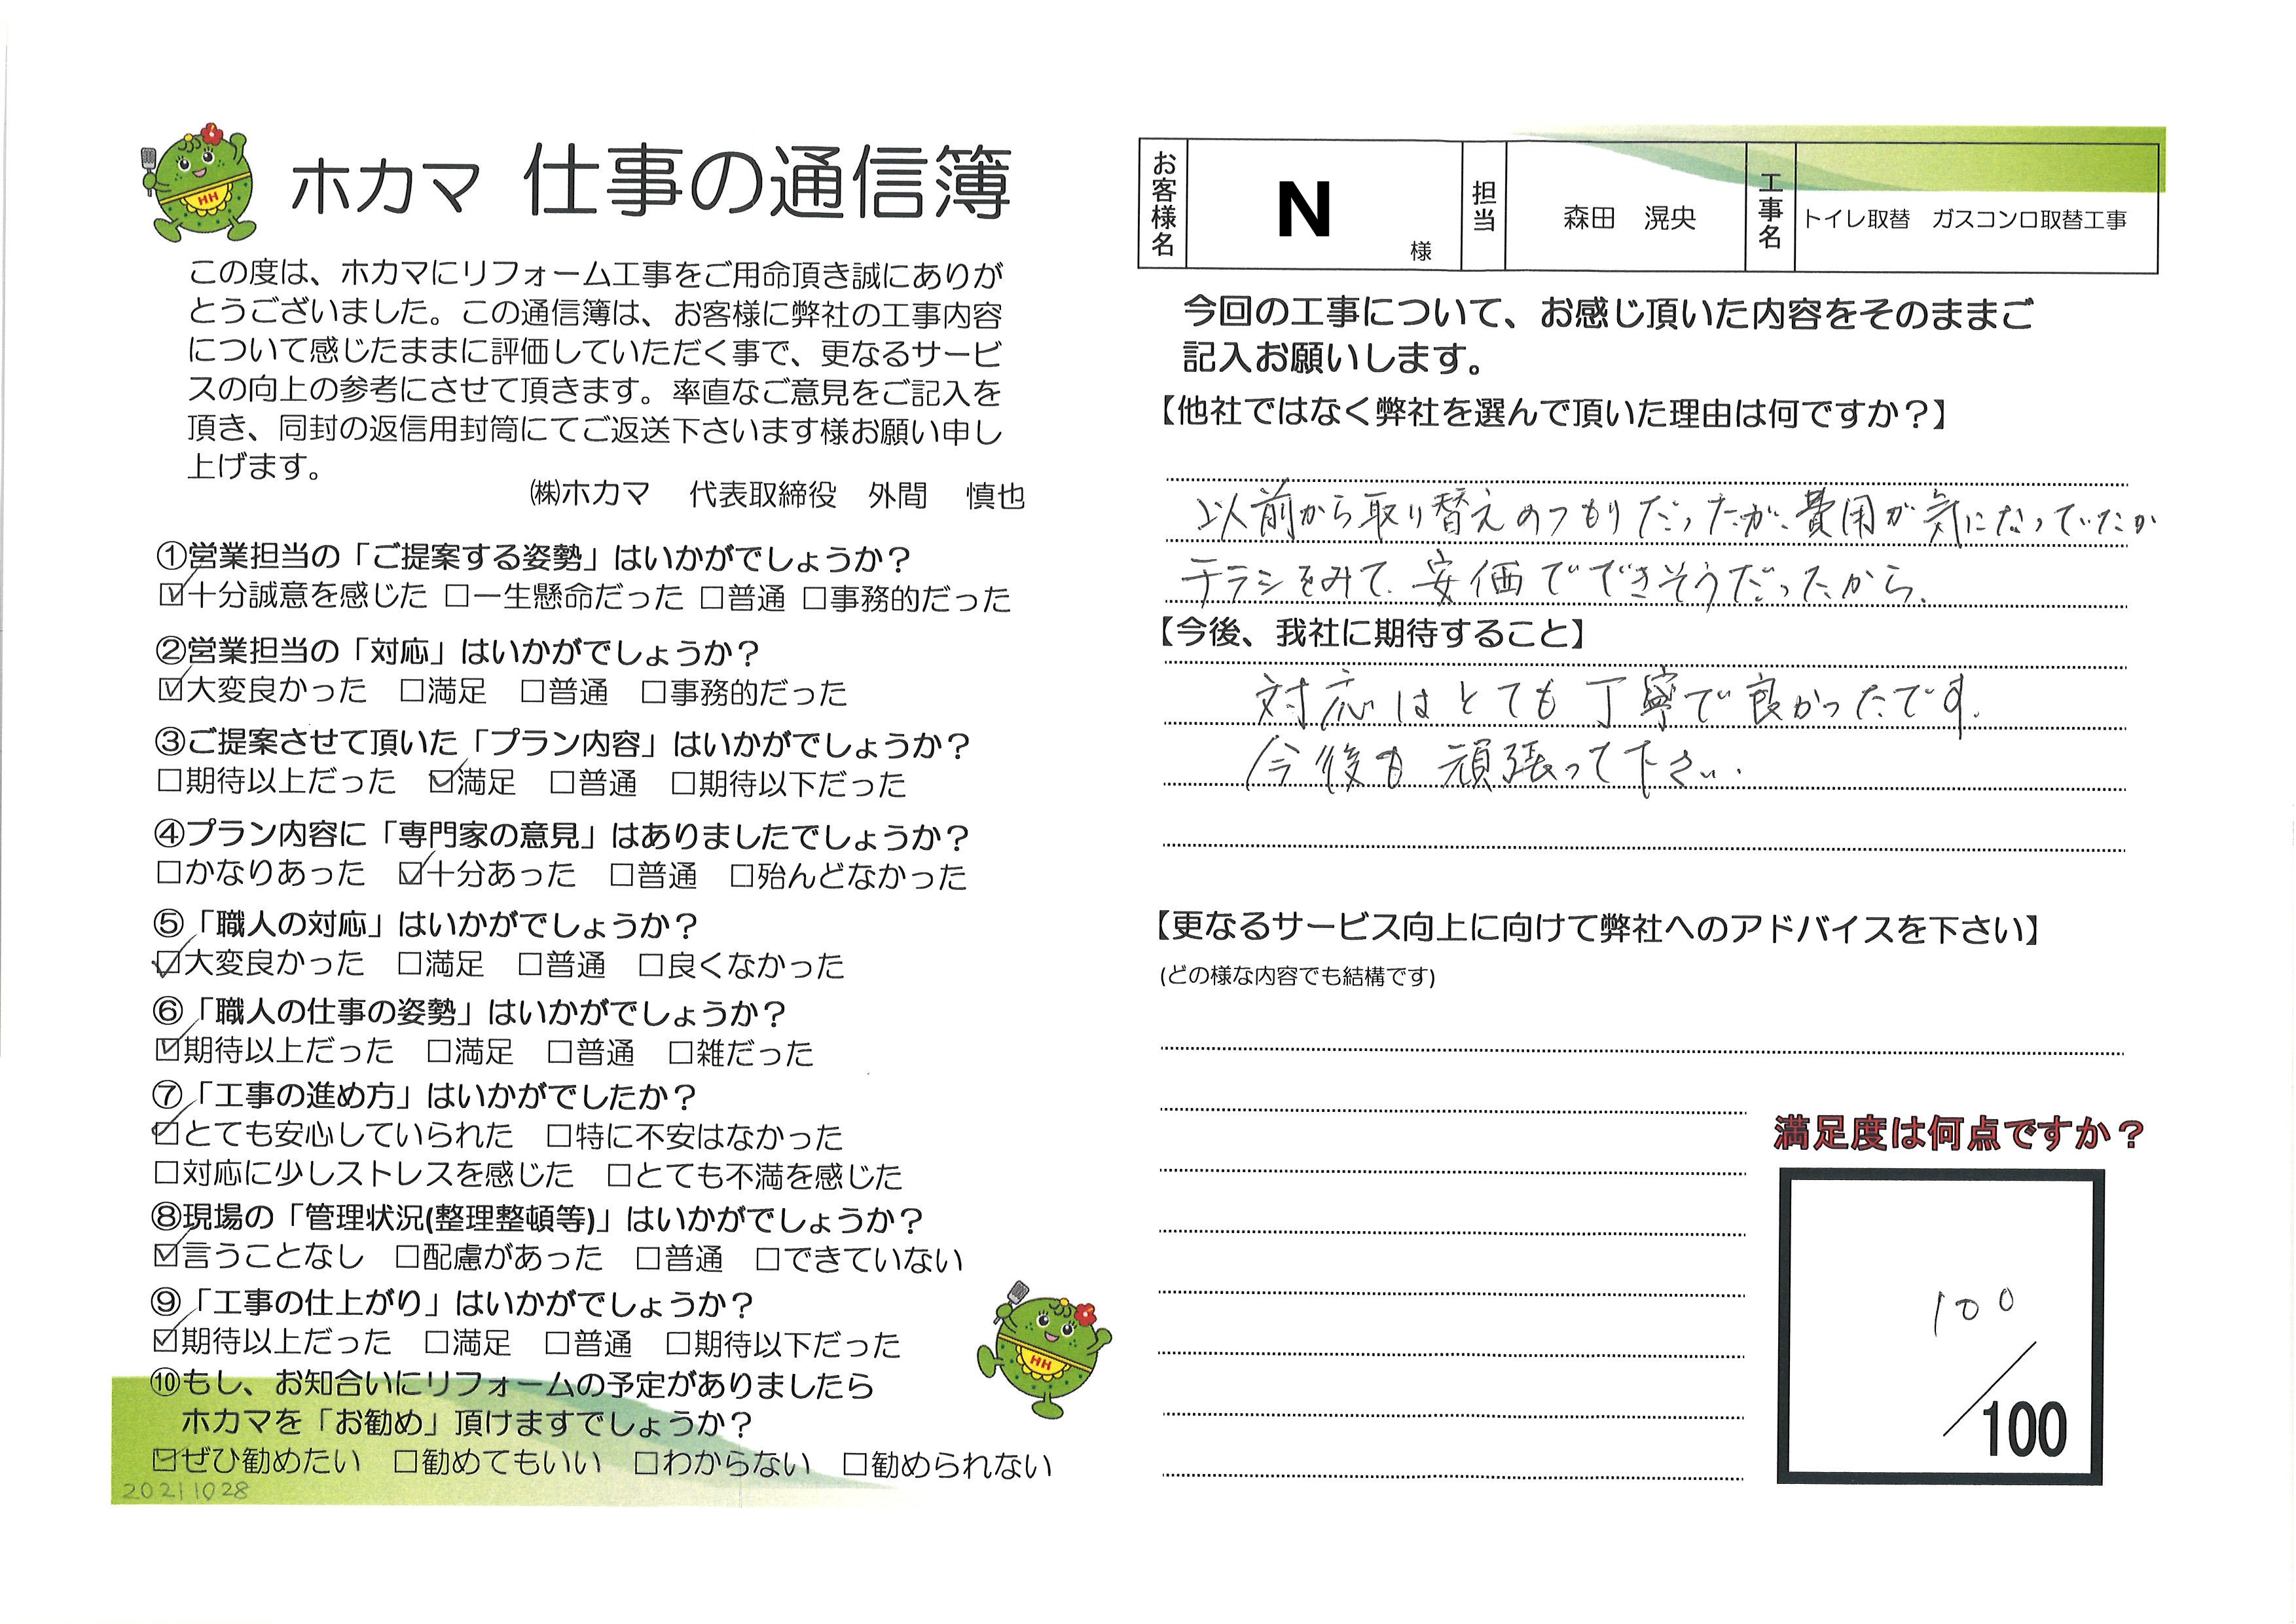 ホカマ 仕事の通信簿
この度は、ホカマにリフォーム工事をご用命頂き誠にありが
とうございました。この通信簿は、お客様に弊社の工事内容
について感じたままに評価していただく事で、更なるサービ
スの向上の参考にさせて頂きます。率直なご意見をご記入を
頂き、同封の返信用封筒にてご返送下さいます様お願い申し
上げます。
㈱ホカマ 代表取締役 外間 慎也
①営業担当の「ご提案する姿勢」はいかがでしょうか？
☑十分誠意を感じた □一生懸命だった □普通 □事務的だった
②営業担当の「対応」はいかがでしょうか？
☑大変良かった □満足 □普通 □事務的だった
③ご提案させて頂いた「プラン内容」はいかがでしょうか？
□期待以上だった ☑満足 □普通 □期待以下だった
④プラン内容に「専門家の意見」はありましたでしょうか？
□かなりあった ☑十分あった □普通 □殆んどなかった
⑤「職人の対応」はいかがでしょうか？
☑大変良かった □満足 □普通 □良くなかった
⑥「職人の仕事の姿勢」はいかがでしょうか？
☑期待以上だった □満足 □普通 □雑だった
⑦「工事の進め方」はいかがでしたか？
☑とても安心していられた □特に不安はなかった
□対応に少しストレスを感じた □とても不満を感じた
⑧現場の「管理状況(整理整頓等)」はいかがでしょうか？
☑言うことなし □配慮があった □普通 □できていない
⑨「工事の仕上がり」はいかがでしょうか？
☑期待以上だった □満足 □普通 □期待以下だった
⑩もし、お知合いにリフォームの予定がありましたら
ホカマを「お勧め」頂けますでしょうか？
☑ぜひ勧めたい □勧めてもいい □わからない □勧められない
20211028
HH
HH
お客様名 N 様 担当 森田 滉央 工事名 トイレ取替 ガスコンロ取替工事
今回の工事について、お感じ頂いた内容をそのままご
記入お願いします。
【他社ではなく弊社を選んで頂いた理由は何ですか？】
以前から取り替えのつもりだったが、費用が気になっていたが
チラシをみて、安価でできそうだったから。
【今後、我社に期待すること】
対応はとても丁寧で良かったです。
今後も頑張って下さい。
【更なるサービス向上に向けて弊社へのアドバイスを下さい】
(どの様な内容でも結構です)
満足度は何点ですか？
100
/100